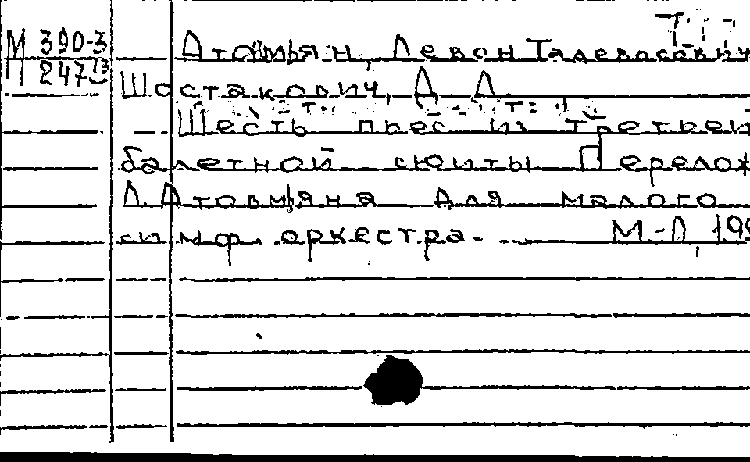 М 390-3 Атовмьян, Левон Тадевосович
П 247/13 Шостакович, Д. Д.
Шесть пьес из третьей
балетной сюиты Перелож
Л. Атовмьяна для малого
симф. оркестра. М-Л, 195